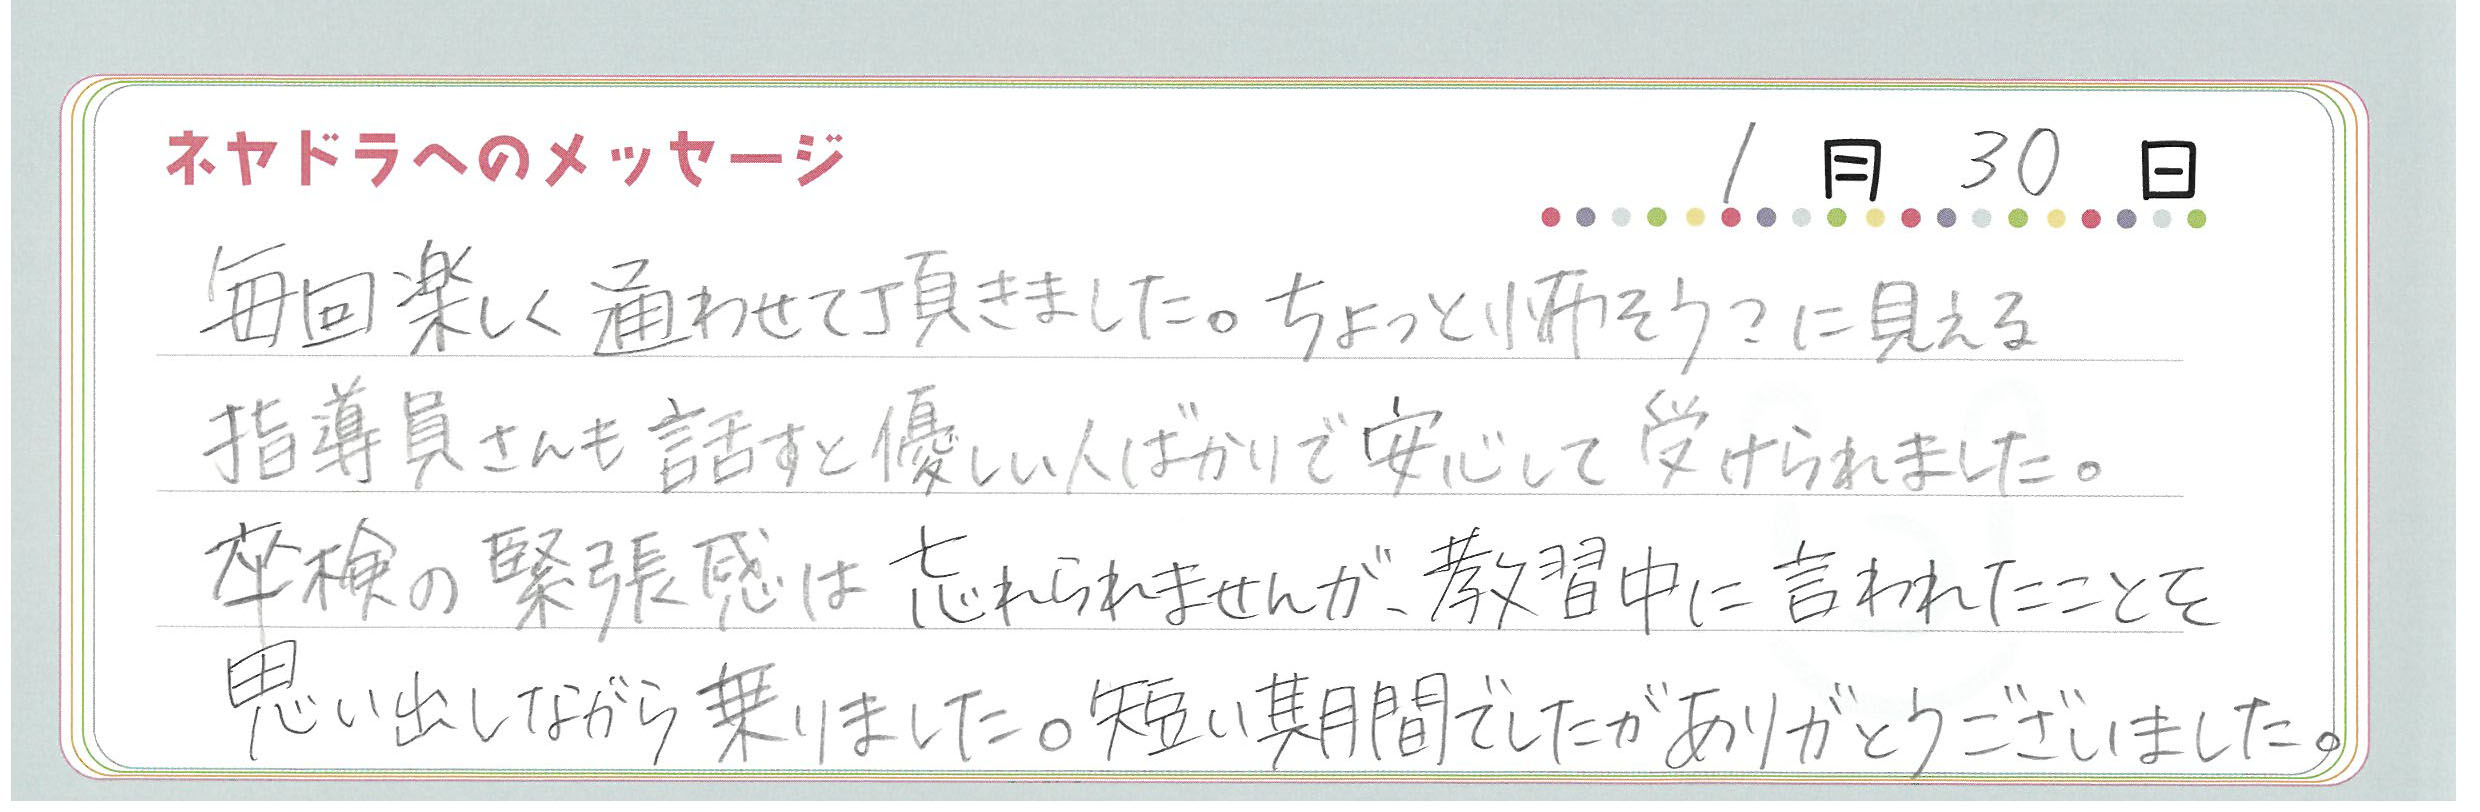 ネヤドラへのメッセージ
1月30日
毎回楽しく通わせて頂きました。ちょっと怖そう?に見える
指導員さんも話すと優しい人ばかりで安心して受けられました。
卒検の緊張感は忘れられませんが、教習中に言われたことを
思い出しながら乗りました。短い期間でしたがありがとうございました。